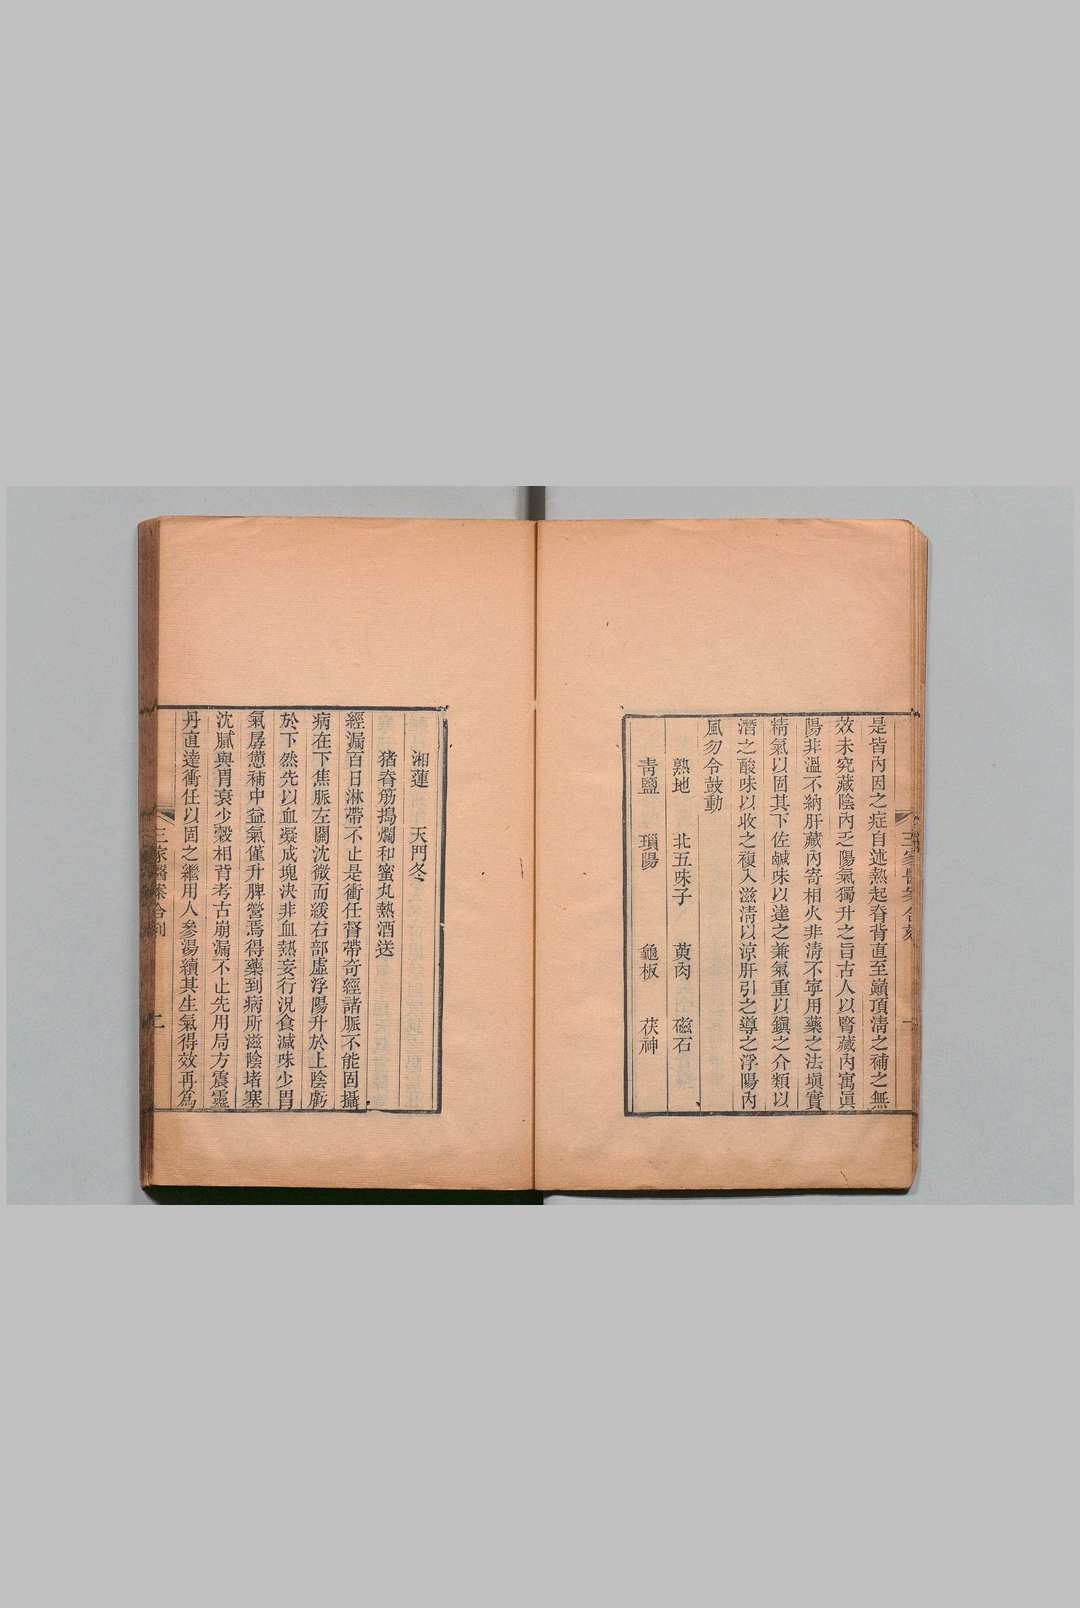 是皆內因之症自述熱起脊背直至巓頂淸之補之無
效未究藏陰內乏陽氣獨升之旨古人以腎藏內寓眞
陽非溫不納肝藏內寄相火非淸不寧用藥之法塡實
精氣以固其下佐鹹味以達之兼氣重以鎭之介類以
潛之酸味以收之複入滋淸以涼肝引之導之浮陽內
風勿令鼓動
熟地 北五味子 萸肉 磁石
靑鹽 瑣陽 龜板 茯神
湘蓮 天門冬
猪脊筋搗爛和蜜丸熱酒送
經漏百日淋帶不止是衝任督帶奇經諸脈不能固攝
病在下焦脈左關沈微而緩右部虛浮陽升於上陰虧
於下然先以血凝成塊決非血熱妄行況食減味少胃
氣孱憊補中益氣僅升脾營焉得藥到病所滋陰堵塞
沈膩與胃衰少穀相背考古崩漏不止先用局方震靈
丹直達衝任以固之繼用人參湯續其生氣得效再爲
三家醫案合刻 二